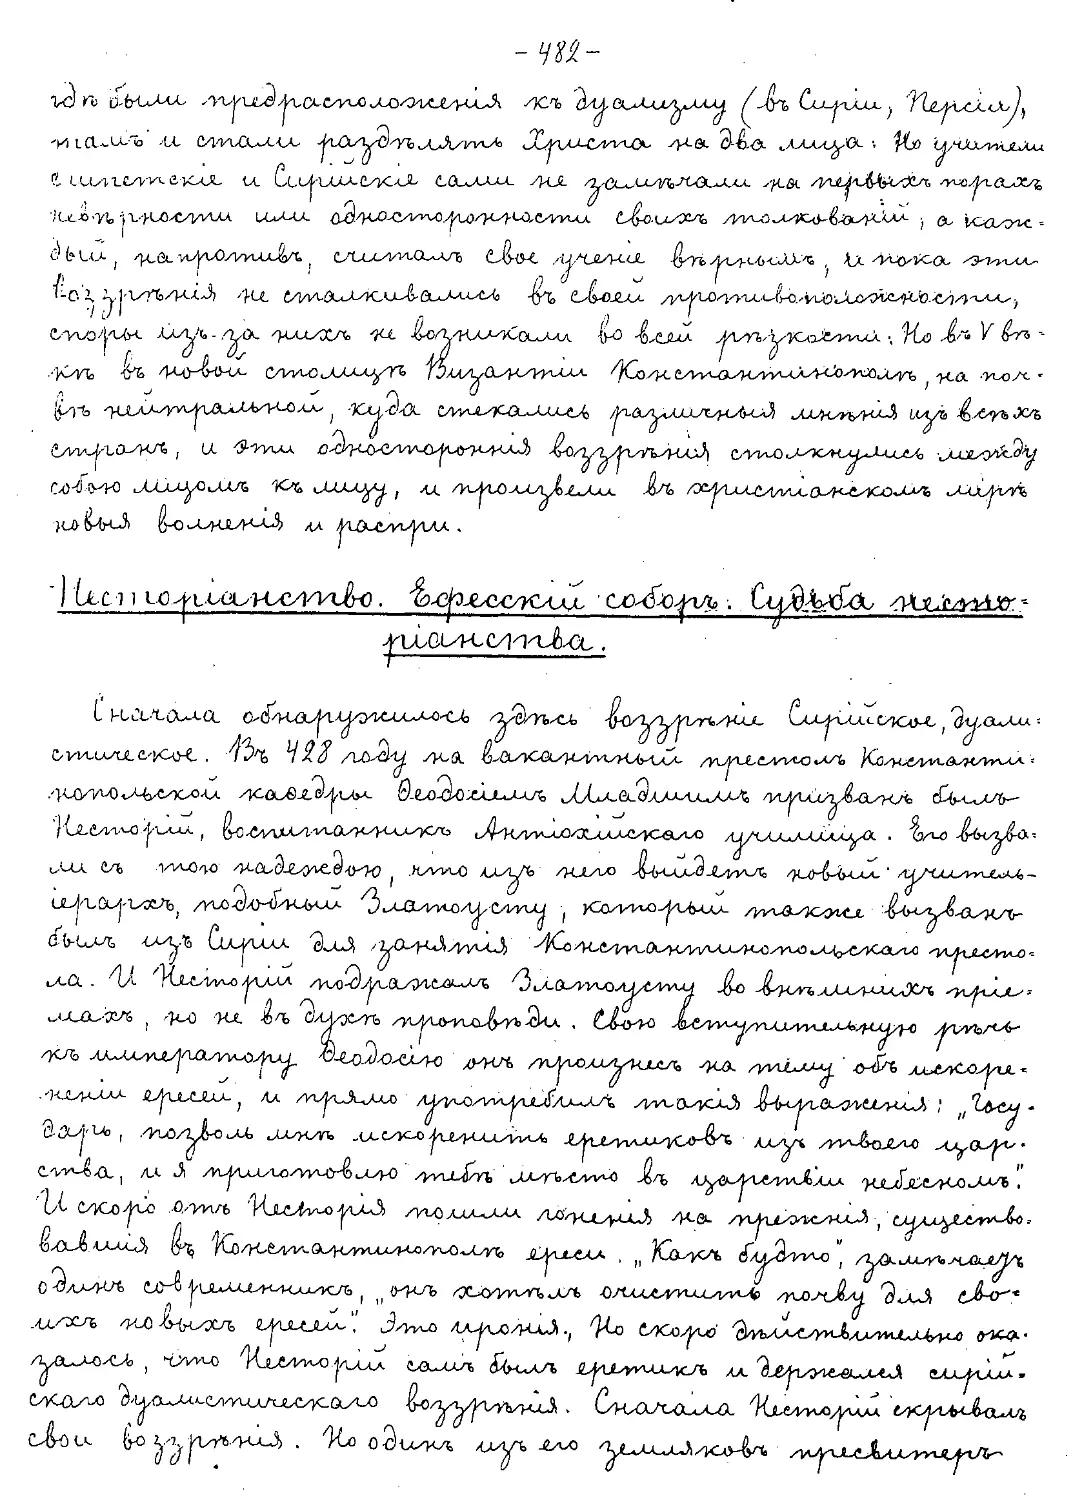 -482-
гдѣ были предрасположенія къ дуализму (въ Сиріи, Персіи),
тамъ и стали раздѣлять Христа на два лица. Но учители
египетскіе и Сирійскіе сами не замѣчали на первыхъ порахъ
невѣрности или односторонности своихъ толкованій, а каж-
дый, напротивъ, считалъ свое ученіе вѣрнымъ, и пока эти
воззрѣнія не сталкивались въ своей противоположности,
споры изъ-за нихъ не возникали во всей рѣзкости. Но въ V вѣ-
кѣ въ новой столицѣ Византіи Константинополѣ, на поч-
вѣ нейтральной, куда стекались различныя мнѣнія изъ всѣхъ
странъ, и эти одностороннія воззрѣнія столкнулись между
собою лицомъ къ лицу, и произвели въ христіанскомъ мірѣ
новыя волненія и распри.
Несторіанство. Ефесскій соборъ. Судьба несто-
ріанства.
Сначала обнаружилось здѣсь воззрѣніе Сирійское, дуали-
стическое. Въ 428 году на вакантный престолъ Константи-
нопольской каѳедры Ѳеодосіемъ Младшимъ призванъ былъ
Несторій, воспитанникъ Антіохійскаго училища. Его вызва-
ли съ тою надеждою, что изъ него выйдетъ новый учитель-
іерархъ, подобный Златоусту, который также вызванъ
былъ изъ Сиріи для занятія Константинопольскаго престо-
ла. И Несторій подражалъ Златоусту во внѣшнихъ пріе-
махъ, но не въ духѣ проповѣди. Свою вступительную рѣчь
къ императору Ѳеодосію онъ произнесъ на тему объ искоре-
неніи ересей, и прямо употребилъ такія выраженія: „Госу-
дарь, позволь мнѣ искоренить еретиковъ изъ твоего цар-
ства, и я приготовлю тебѣ мѣсто въ царствіи небесномъ".
И скоро отъ Несторія пошли гоненія на прежнія, существо-
вавшія въ Константинополѣ ереси. „Какъ будто", замѣчаетъ
одинъ современникъ, „онъ хотѣлъ очистить почву для сво-
ихъ новыхъ ересей". Это иронія. Но скоро дѣйствительно ока-
залось, что Несторій самъ былъ еретикъ и держался сирій-
скаго дуалистическаго воззрѣнія. Сначала Несторій скрывалъ
свои воззрѣнія. Но одинъ изъ его земляковъ пресвитеръ